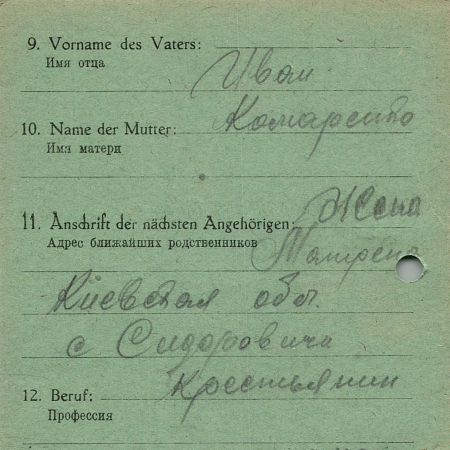 9. Vorname des Vaters: Иван
Имя отца
10. Name der Mutter: Комаренко
Имя матери
11. Anschrift der nächsten Angehörigen: Жена
Адрес ближайших родственников
Матрена
Киевская обл.
с Сидоровичи
12. Beruf: Крестьянин
Профессия